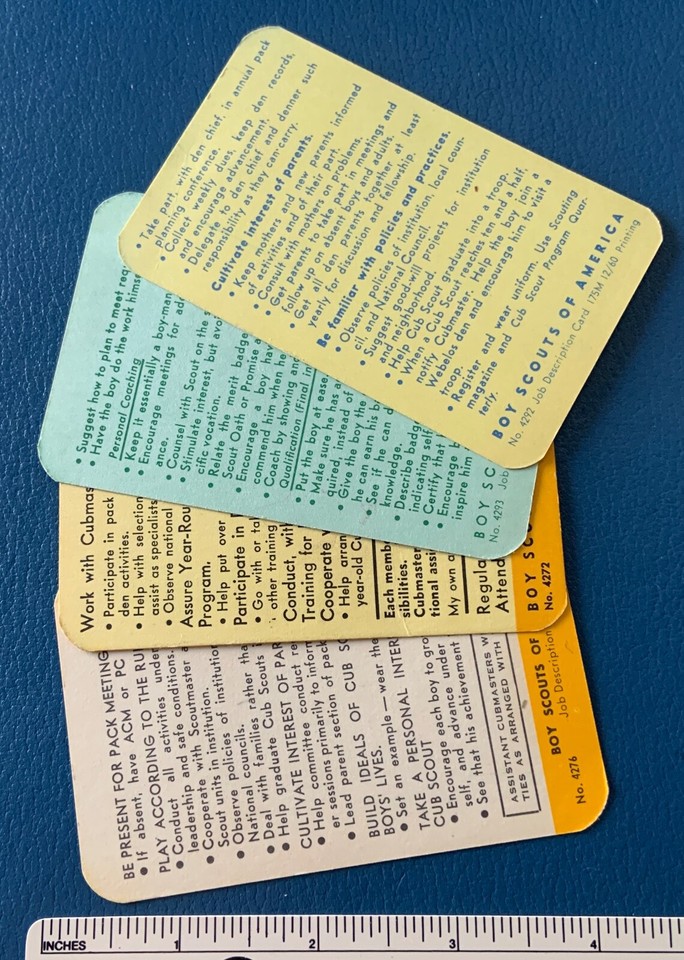 • Take part, with den chief, in annual pack
planning conference.
• Collect weekly dues, keep den records,
and encourage advancement.
• Delegate to den chief and denner such
responsibility as they can carry.
Cultivate interest of parents.
• Keep mothers and new parents informed
of activities and of their part.
• Consult with mothers on problems.
• Get parents to take part in meetings and
follow up on absent boys and adults.
• Get all den parents together at least
yearly for discussion and fellowship.
Be familiar with policies and practices.
• Observe policies of institution, local coun-
cil, and National Council.
• Suggest good-will projects for institution
and neighborhood.
• Help Cub Scout graduate into a troop.
• When a Cub Scout reaches ten and a half,
notify Cubmaster. Help the boy join a
Webelos den and encourage him to visit a
troop.
• Register and wear uniform. Use Scouting
magazine and Cub Scout Program Quar-
terly.
BOY SCOUTS OF AMERICA
No. 4292 Job Description Card 175M 12/60 Printing
• Suggest how to plan to meet req
• Have the boy do the work himse
Personal Coaching
• Keep it essentially a boy-man
• Encourage meetings for ad
ance.
• Counsel with Scout on the s
• Stimulate interest, but avo
cific vocation.
• Relate the merit badge
Scout Oath or Promise a
• Encourage a boy hav
commend him when he
• Coach by showing and
Qualification (Final
• Put the boy at ease
• Make sure he has a
quired, instead of
• Give the boy the
he can earn his b
• See if he can d
knowledge.
• Describe badg
indicating self
• Certify that
• Encourage b
inspire him
BOY SC
No. 4293 Job
Work with Cubmas
• Participate in pack
den activities.
• Help with selection
assist as specialists
• Observe national
Assure Year-Rou
Program.
• Help put over
Participate in
• Go with or ta
other training
Conduct, with
Training for
Cooperate
• Help arran
year-old Cu
Each memb
sibilities.
Cubmaster
tional assi
My own a
Regula
Attend
BOY SCO
No. 4272
BE PRESENT FOR PACK MEETING
• If absent, have ACM or PC
PLAY ACCORDING TO THE RU
• Conduct all activities under
leadership and safe conditions.
• Cooperate with Scoutmaster a
Scout units in institution.
• Observe policies of institution
National councils.
• Deal with families rather tha
• Help graduate Cub Scouts i
CULTIVATE INTEREST OF PAR
• Help committee conduct re
er sessions primarily to inform
• Lead parent section of pack
BUILD IDEALS OF CUB SC
BOYS' LIVES.
• Set an example — wear the
TAKE A PERSONAL INTER
CUB SCOUT
• Encourage each boy to gro
self, and advance under
• See that his achievement
ASSISTANT CUBMASTERS W
TIES AS ARRANGED WITH
BOY SCOUTS OF
Job Description
No. 4276
INCHES 1 2 3 4